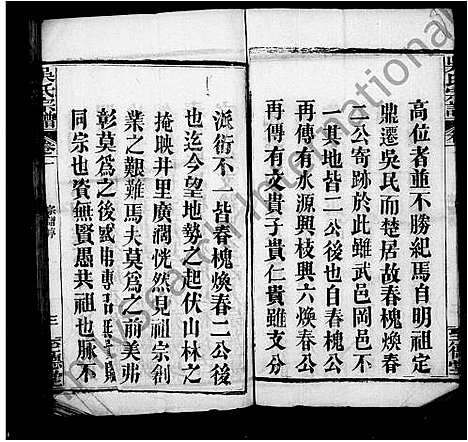 高位者並不勝紀馬自明祖定
鼎遷吳民而楚居故春槐煥春
二公寄跡於此雖武邑岡邑不
一其地皆二公後也自春槐公
再傳有水源興枝興六煥春公
再傳有文貴子貴仁貴雖支分
吳氏宗譜
卷一
三
至德堂
派衍不一皆春槐煥春二公後
也迄今望地勢之起伏山林之
掩映井里廣濶恍然見祖宗創
業之艱難馬夫莫為之前美弗
彰莫為之後盛弗傳
同宗也賢無賢愚共祖也脈不
hiveSearch International